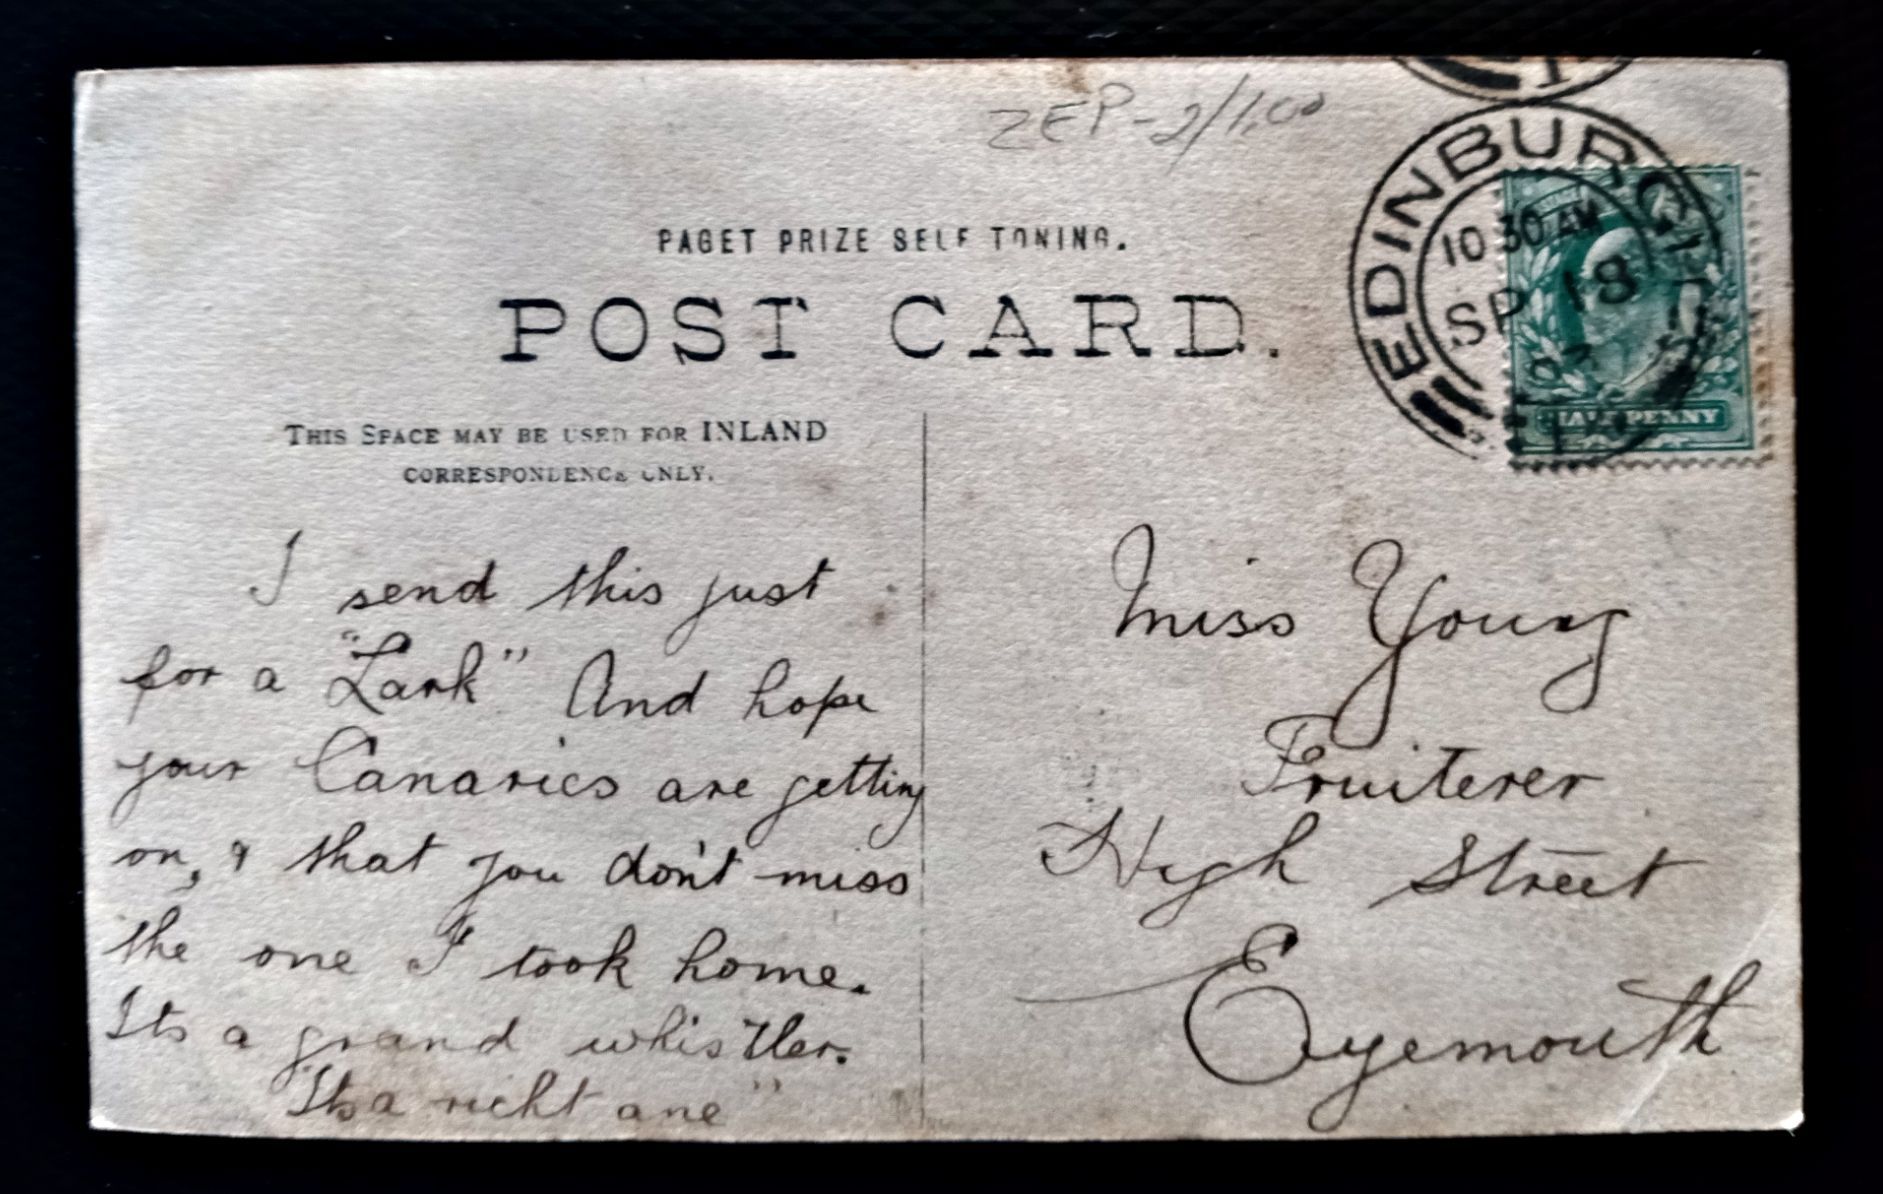 ZEP-2/1,00
EDINBURGH
10 30 AM
SP 18
07
HALF PENNY
PAGET PRIZE SELF TONING.
POST CARD.
THIS SPACE MAY BE USED FOR INLAND
CORRESPONDENCE ONLY.
I send this just
for a "Lark" And hope
your Canaries are getting
on, & that you don't miss
the one I took home.
Its a grand whistler.
"Its a richt ane"
Miss Young
Fruiterer
High Street
Eyemouth